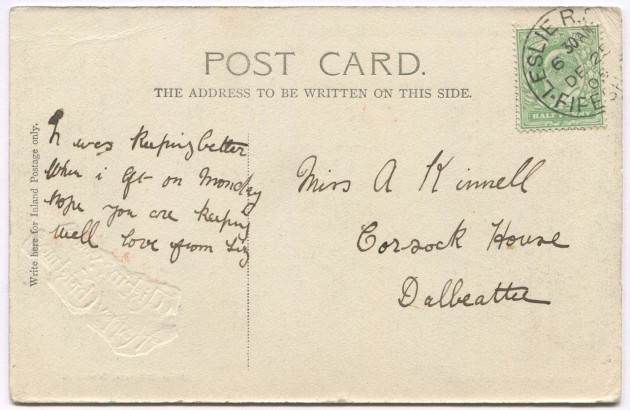 POST CARD.
THE ADDRESS TO BE WRITTEN ON THIS SIDE.
Write here for Inland Postage only.
was keeping better
when i on Monday
hope you are keeping
well love from Liz
Miss A Kinnell
Corsock House
Dalbeattie
LESLIE R.S.
6 30AM
DE 25
FIFE
HALF PENNY